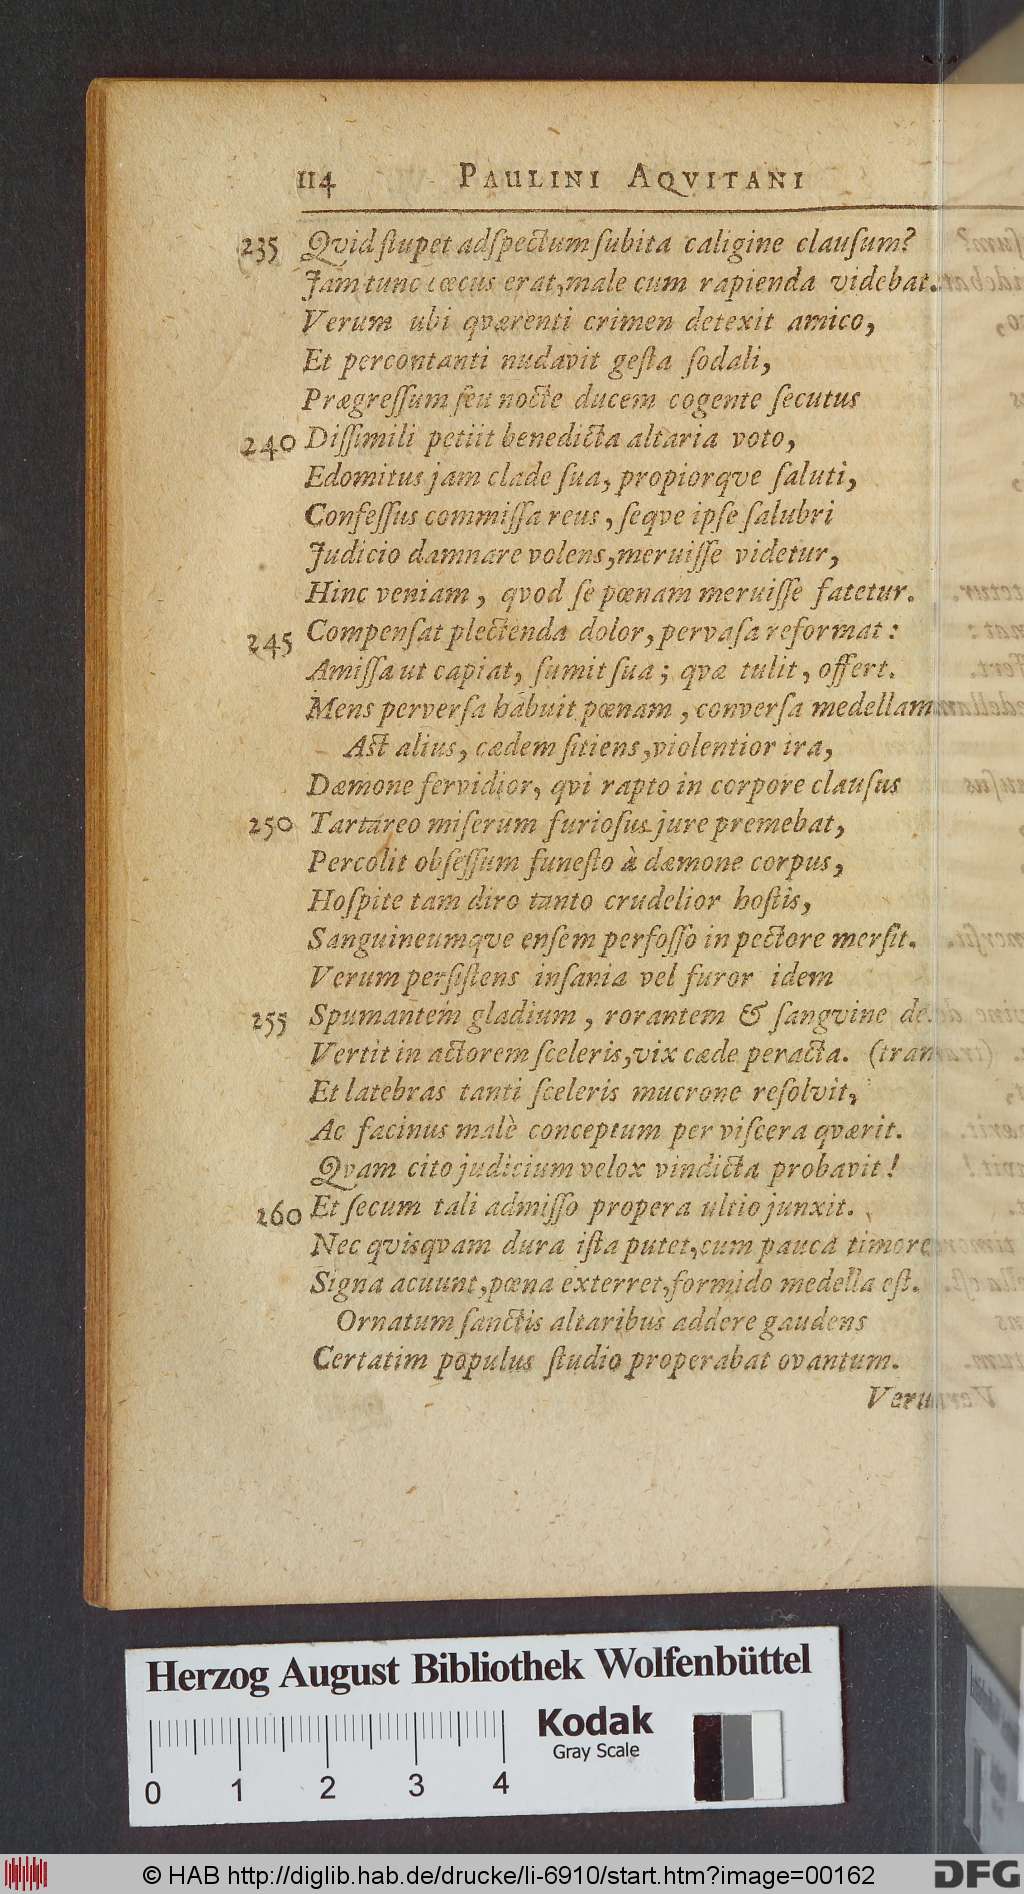 114 PAULINI AQVITANI
235 Qvid ſtupet adſpectum ſubita caligine clauſum?
Jam tunc cœcus erat, male cum rapienda videbat.
Verum ubi qværenti crimen detexit amico,
Et percontanti nudavit geſta ſodali,
Prægreſſum ſeu nocte ducem cogente ſecutus
240 Diſſimili petiit benedicta altaria voto,
Edomitus jam clade ſua, propiorqve ſaluti,
Confeſſus commiſſa reus, ſeqve ipſe ſalubri
Judicio damnare volens, meruiſſe videtur,
Hinc veniam, qvod ſe pœnam meruiſſe fatetur.
245 Compenſat plectenda dolor, pervaſa reformat:
Amiſſa ut capiat, ſumit ſua; qvæ tulit, offert.
Mens perverſa habuit pœnam, converſa medellam
Aſt alius, cædem ſitiens, violentior ira,
Dæmone fervidior, qvi rapto in corpore clauſus
250 Tartareo miſerum furioſus jure premebat,
Percolit obſeſſum funeſto à dæmone corpus,
Hoſpite tam diro tanto crudelior hoſtis,
Sanguineumqve enſem perfoſſo in pectore merſit.
Verum perſiſtens inſania vel furor idem
255 Spumantem gladium, rorantem & ſangvine de-
Vertit in actorem ſceleris, vix cæde peracta. (tran
Et latebras tanti ſceleris mucrone reſolvit,
Ac facinus malè conceptum per viſcera qværit.
Qvam cito judicium velox vindicta probavit!
260 Et ſecum tali admiſſo propera ultio junxit.
Nec qvisqvam dura iſta putet, cum pauca timore
Signa acuunt, pœna exterret, formido medella eſt.
Ornatum ſanctis altaribus addere gaudens
Certatim populus ſtudio properabat ovantum.
Veru
Herzog August Bibliothek Wolfenbüttel
Kodak
Gray Scale
0 1 2 3 4
© HAB http://diglib.hab.de/drucke/li-6910/start.htm?image=00162
DFG